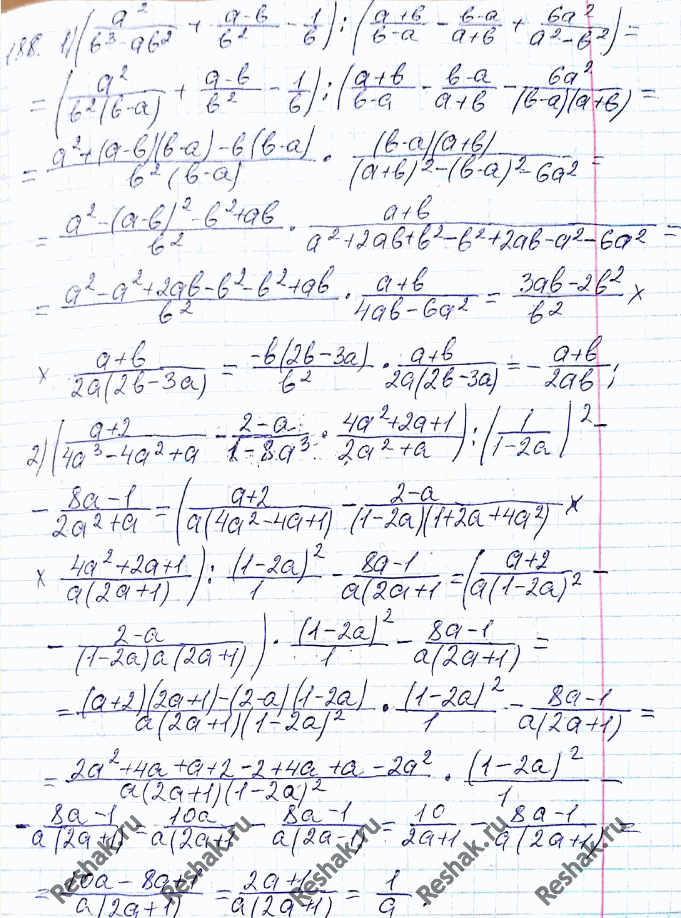 188. 1) (a²/(b³-ab²) + (a-b)/b² - 1/b) : ((a+b)/(b-a) - (b-a)/(a+b) + 6a²/(a²-b²)) =
= (a²/(b²(b-a)) + (a-b)/b² - 1/b) : ((a+b)/(b-a) - (b-a)/(a+b) - 6a²/((b-a)(a+b)) =
= (a²+(a-b)(b-a)-b(b-a))/(b²(b-a)) · ((b-a)(a+b))/((a+b)²-(b-a)²-6a²) =
= (a²-(a-b)²-b²+ab)/b² · (a+b)/(a²+2ab+b²-b²+2ab-a²-6a²) =
= (a²-a²+2ab-b²-b²+ab)/b² · (a+b)/(4ab-6a²) = (3ab-2b²)/b² ×
× (a+b)/(2a(2b-3a)) = (-b(2b-3a))/b² · (a+b)/(2a(2b-3a)) = - (a+b)/(2ab);
2) ((a+2)/(4a³-4a²+a) - (2-a)/(1-8a³) · (4a²+2a+1)/(2a²+a)) : (1/(1-2a))² -
- (8a-1)/(2a²+a) = ((a+2)/(a(4a²-4a+1)) - (2-a)/((1-2a)(1+2a+4a²)) ×
× (4a²+2a+1)/(a(2a+1))) : (1-2a)²/1 - (8a-1)/(a(2a+1) = ((a+2)/(a(1-2a)²) -
- (2-a)/((1-2a)a(2a+1))) · (1-2a)²/1 - (8a-1)/(a(2a+1)) =
= ((a+2)(2a+1)-(2-a)(1-2a))/(a(2a+1)(1-2a)²) · (1-2a)²/1 - (8a-1)/(a(2a+1)) =
= (2a²+4a+a+2-2+4a+a-2a²)/(a(2a+1)(1-2a)²) · (1-2a)²/1 -
- (8a-1)/(a(2a+1)) = 10a/(a(2a+1) - (8a-1)/(a(2a-1)) = 10/(2a+1) - (8a-1)/(a(2a+1)) =
= (10a-8a+1)/(a(2a+1)) = (2a+1)/(a(2a+1)) = 1/a.
Reshak.ru Reshak.ru Reshak.ru Reshak.ru Reshak.ru